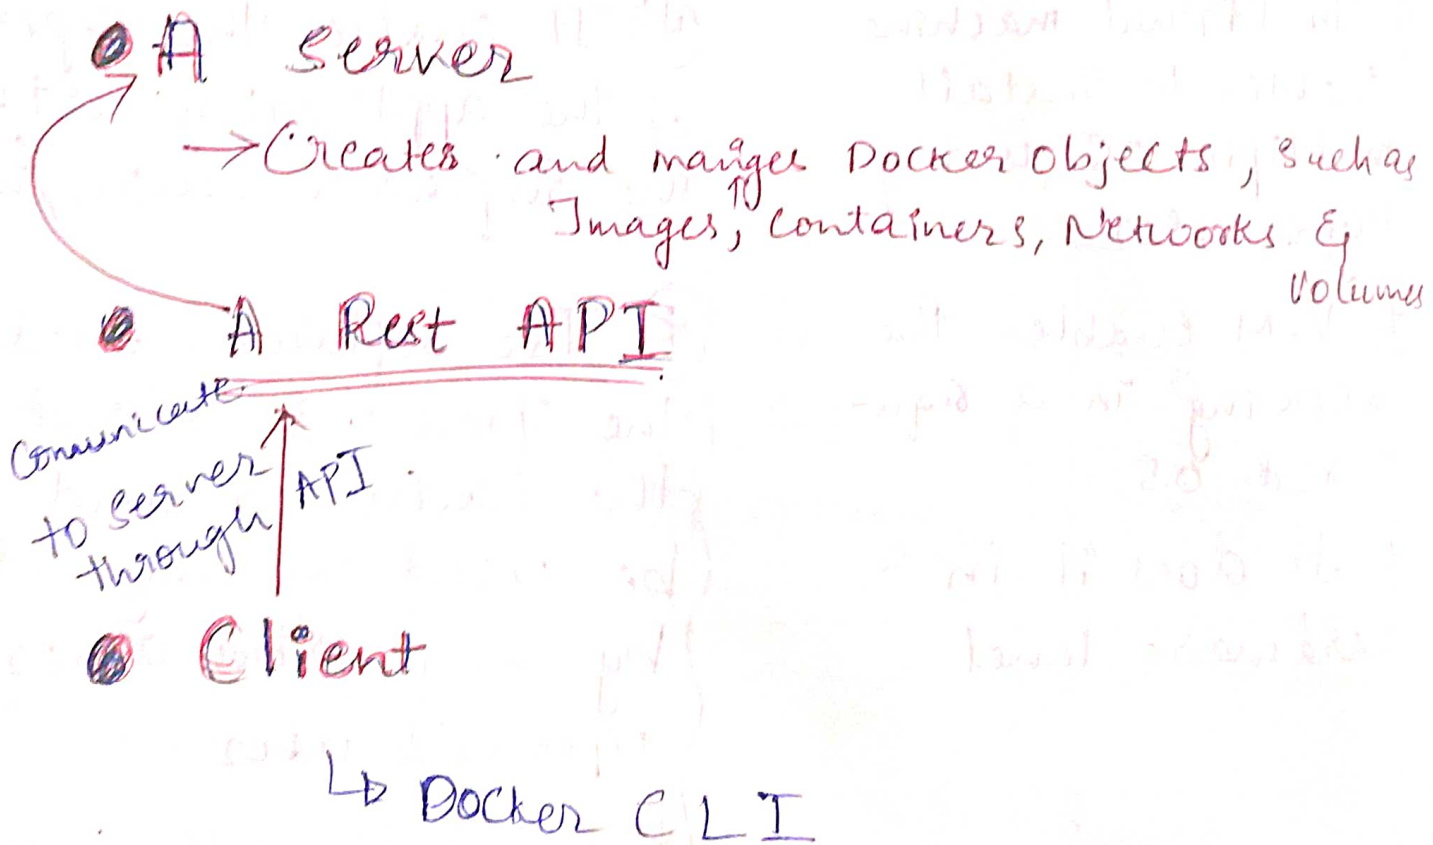 A Server
→ Creates and manges Docker objects, such as
Images, Containers, Networks &
Volumes
A Rest API
Communicate
to server
through API
Client
↳ Docker CLI